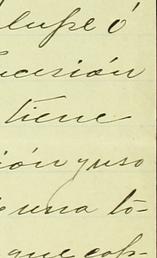 lupe ó
cesión
tiene
ión y uso
una tó-
que cop-